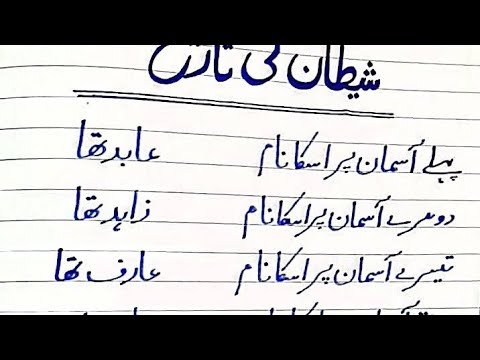 شیطان کی تاریخ
پہلے آسمان پر اسکا نام عابد تھا
دوسرے آسمان پر اسکا نام زاہد تھا
تیسرے آسمان پر اسکا نام عارف تھا